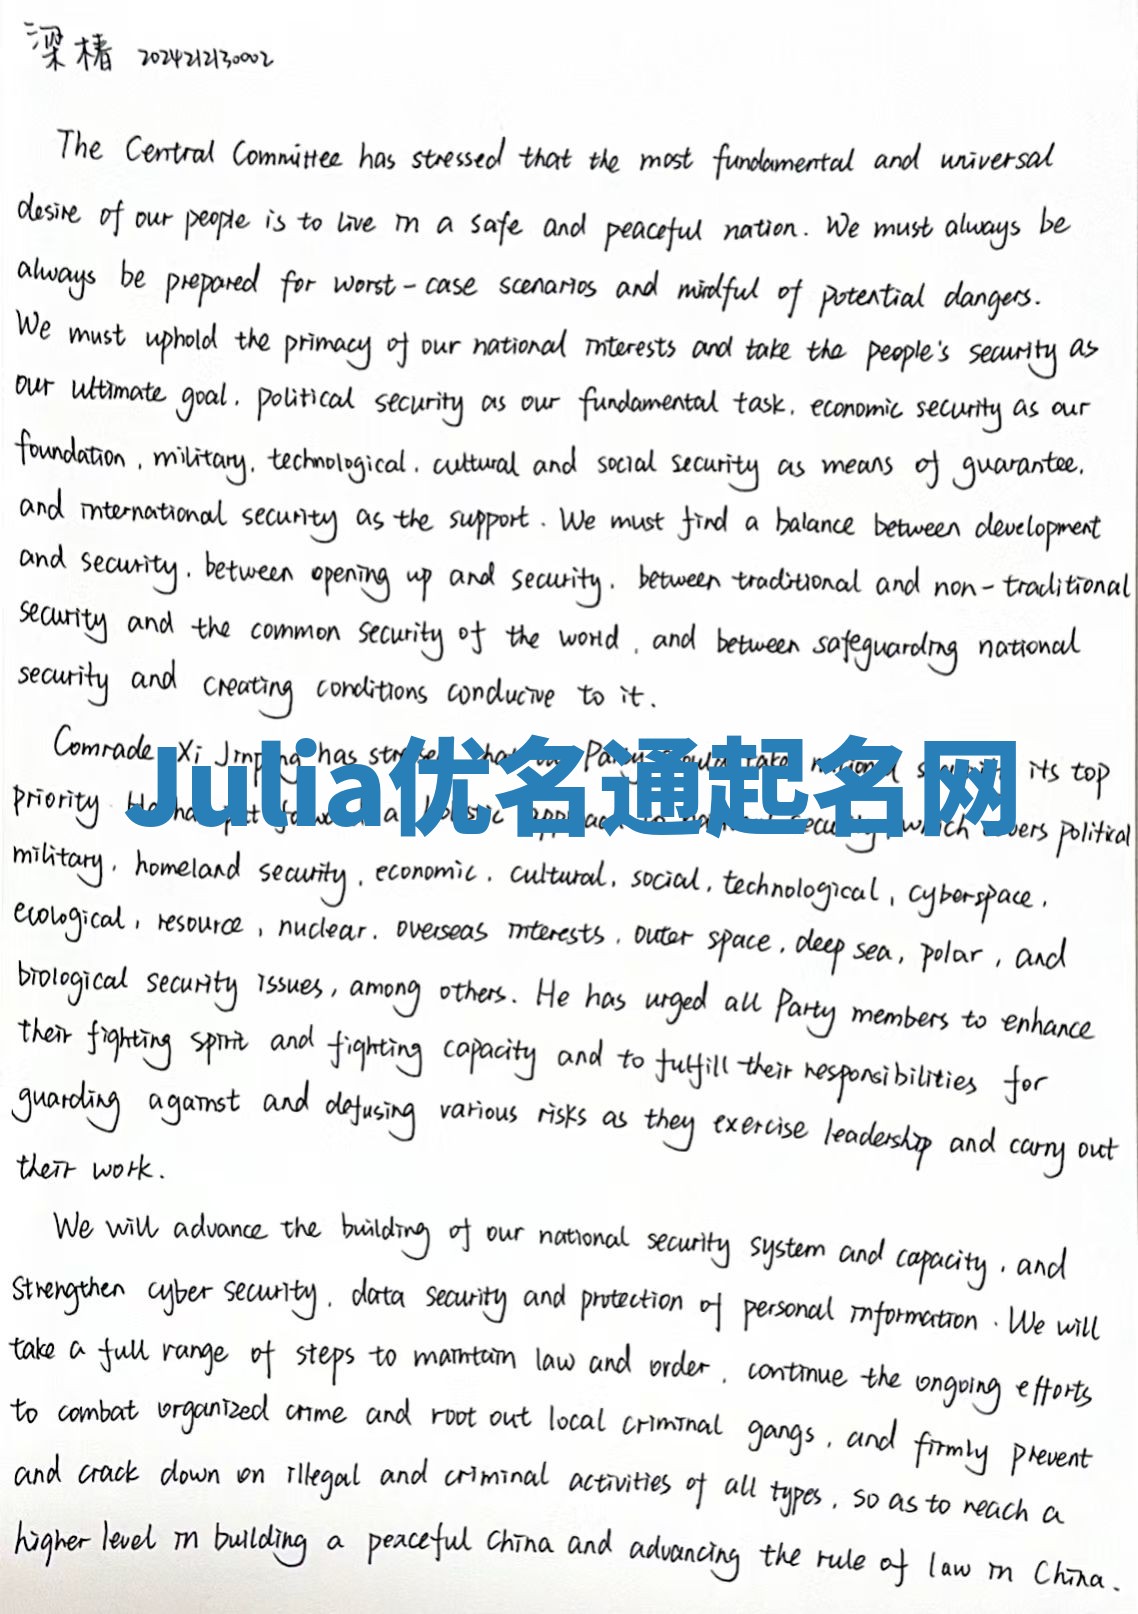 梁椿 2024212130002
The Central Committee has stressed that the most fundamental and universal
desire of our people is to live in a safe and peaceful nation. We must always be
always be prepared for worst-case scenarios and mindful of potential dangers.
We must uphold the primacy of our national interests and take the people's security as
our ultimate goal, political security as our fundamental task, economic security as our
foundation, military, technological, cultural and social security as means of guarantee,
and international security as the support. We must find a balance between development
and security, between opening up and security, between traditional and non-traditional
security and the common security of the world, and between safeguarding national
security and creating conditions conducive to it.
Comrade Xi Jinping has stressed that Party take national its top
Julia优名通起名网
priority He has put forward a approach to security, which covers political
military, homeland security, economic, cultural, social, technological, cyberspace,
ecological, resource, nuclear, overseas interests, outer space, deep sea, polar, and
biological security issues, among others. He has urged all Party members to enhance
their fighting spirit and fighting capacity and to fulfill their responsibilities for
guarding against and defusing various risks as they exercise leadership and carry out
their work.
We will advance the building of our national security system and capacity, and
strengthen cyber security, data security and protection of personal information. We will
take a full range of steps to maintain law and order, continue the ongoing efforts
to combat organized crime and root out local criminal gangs, and firmly prevent
and crack down on illegal and criminal activities of all types, so as to reach a
higher level in building a peaceful China and advancing the rule of law in China.